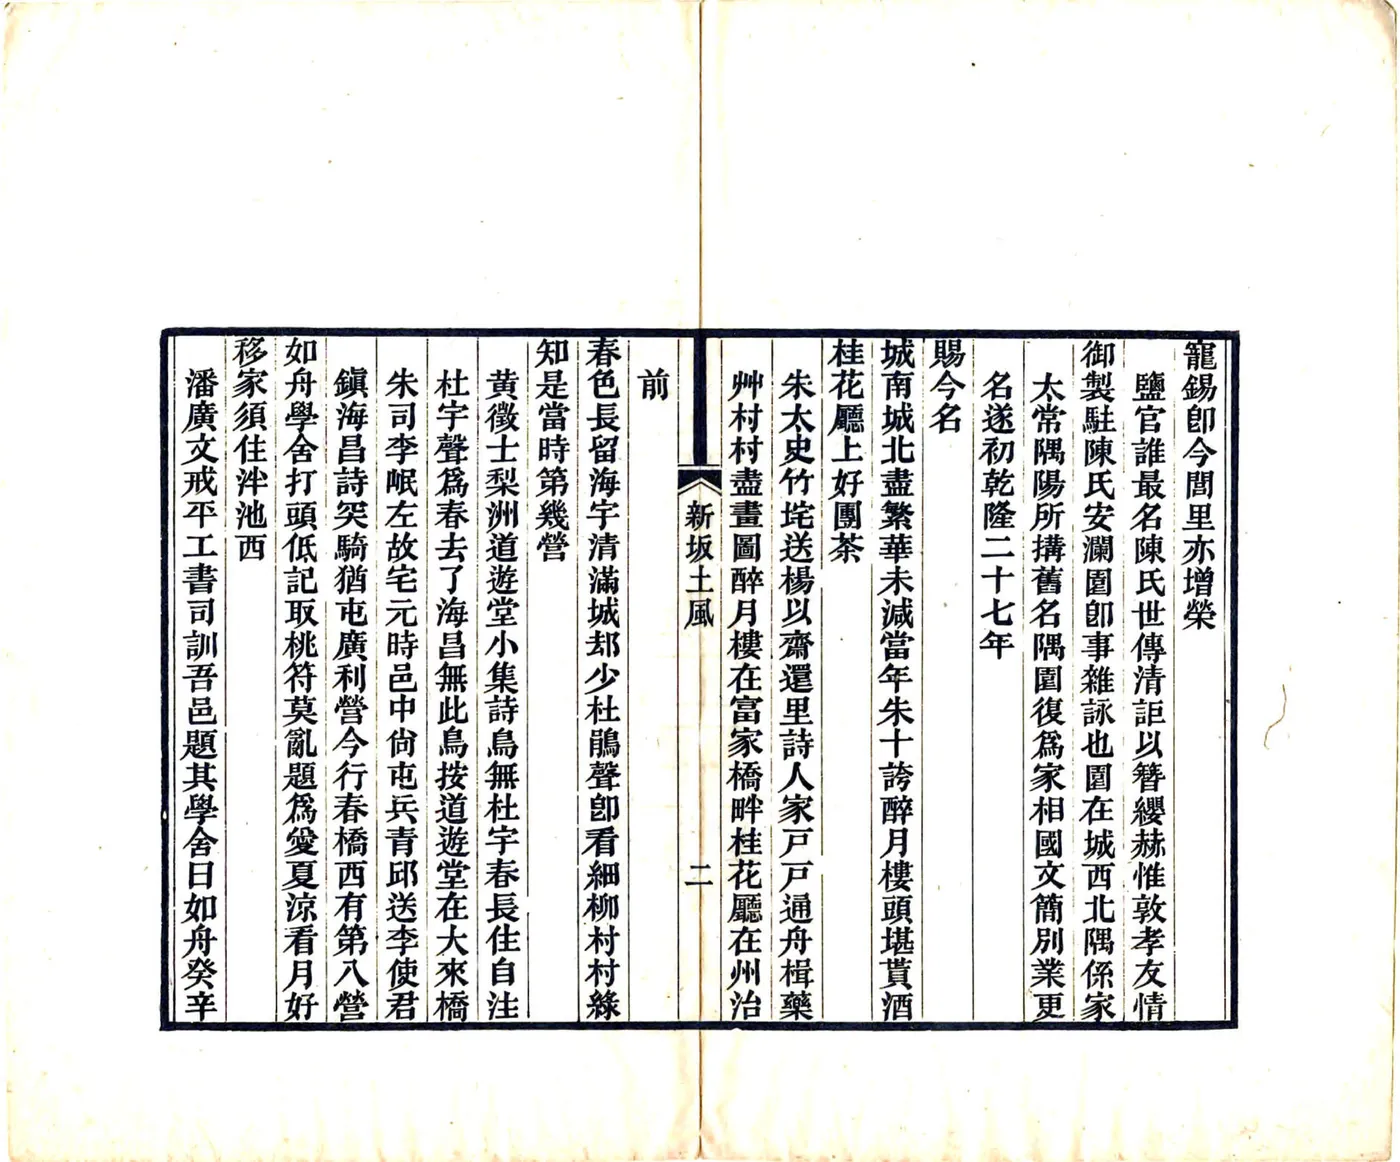 寵錫卽今閭里亦增榮
鹽官誰最名陳氏世傳清詎以簪纓赫惟敦孝友情
御製駐陳氏安瀾園卽事雜詠也園在城西北隅係家
太常隅陽所搆舊名隅園復爲家相國文簡別業更
名遂初乾隆二十七年
賜今名
城南城北盡繁華未減當年朱十誇醉月樓頭堪貰酒
桂花廳上好團茶
朱太史竹垞送楊以齋還里詩人家戸戸通舟楫藥
艸村村盡畫圖醉月樓在富家橋畔桂花廳在州治
前
新坂土風
二
春色長留海宇清滿城却少杜鵑聲卽看細柳村村綠
知是當時第幾營
黃徵士梨洲道遊堂小集詩鳥無杜宇春長住自注
杜宇聲爲春去了海昌無此鳥按道遊堂在大來橋
朱司李岷左故宅元時邑中尙屯兵青邱送李使君
鎭海昌詩突騎猶屯廣利營今行春橋西有第八營
如舟學舍打頭低記取桃符莫亂題爲愛夏涼看月好
移家須住泮池西
潘廣文戒平工書司訓吾邑題其學舍曰如舟癸辛